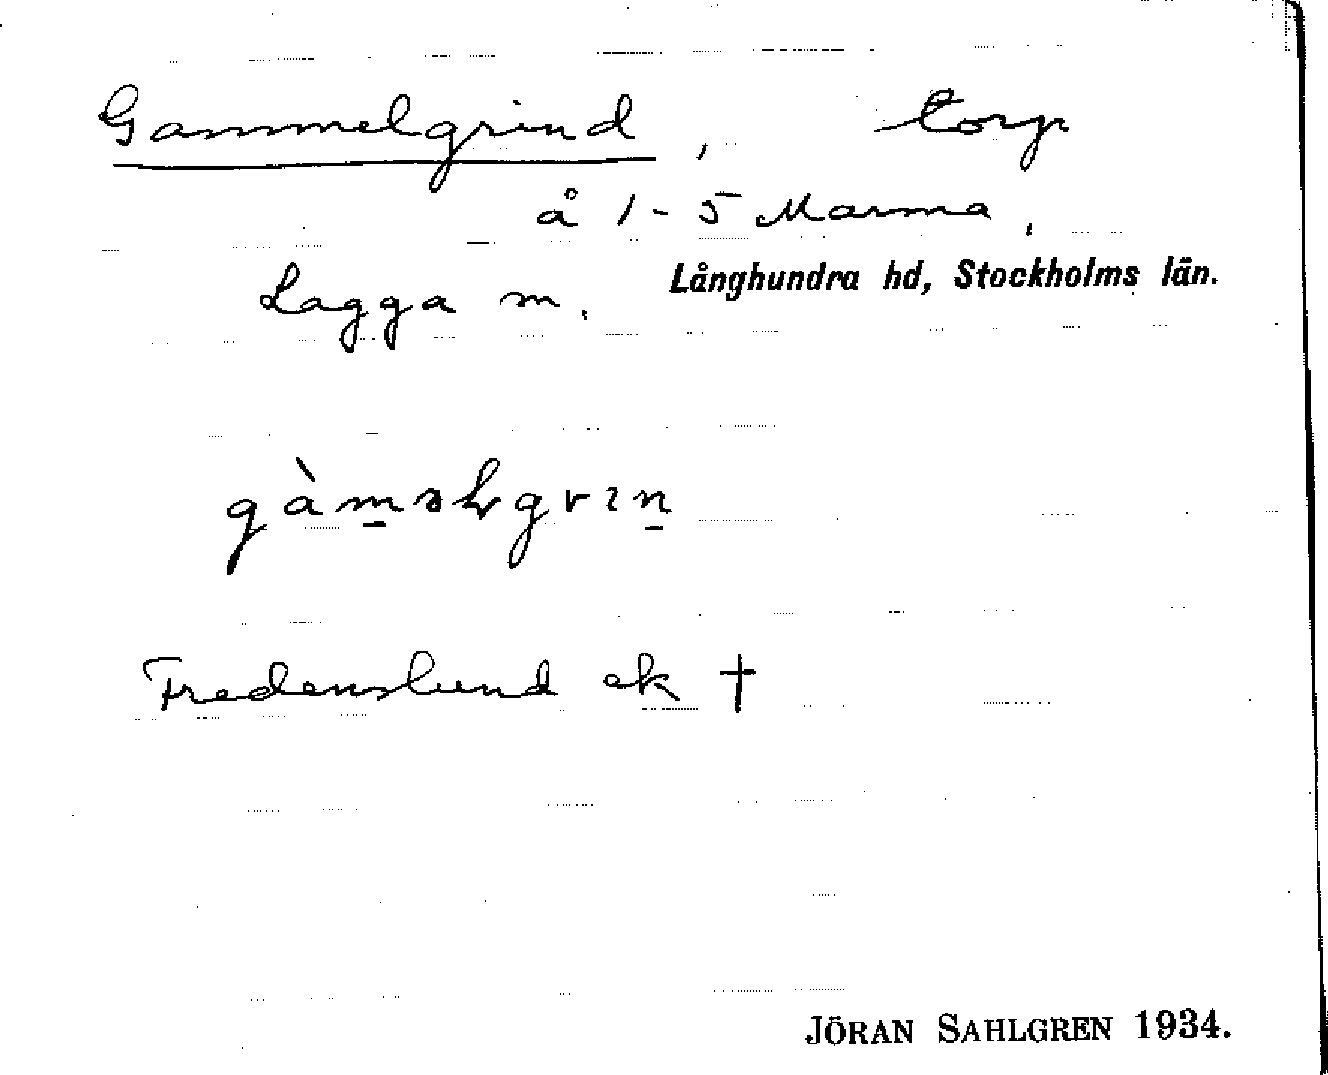 Gammelgrind, torp
å 1-5 Marma,
Lagga sn. Långhundra hd, Stockholms län.
gàm̲əlgrɪn̲
Fredenslund ek †
JÖRAN SAHLGREN 1934.